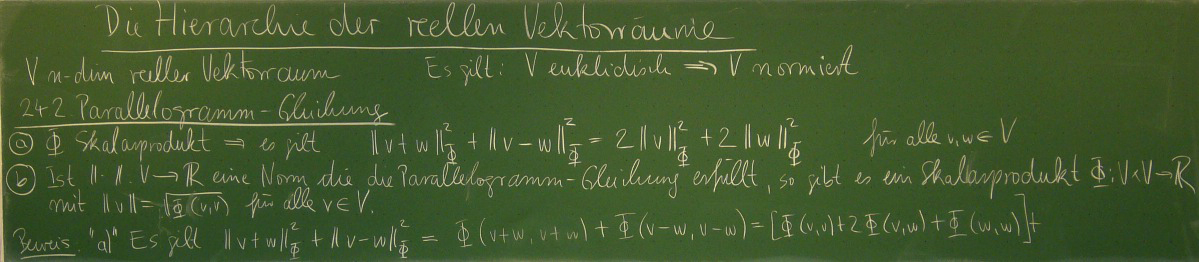 Die Hierarchie der reellen Vektorräume
V n-dim reeller Vektorraum Es gilt: V euklidisch ⇒ V normiert
242 Parallelogramm-Gleichung
(a) Φ Skalarprodukt ⇒ es gilt ‖v+w‖²_Φ + ‖v-w‖²_Φ = 2‖v‖²_Φ + 2‖w‖²_Φ für alle v,w ∈ V
(b) Ist ‖·‖: V → ℝ eine Norm die die Parallelogramm-Gleichung erfüllt, so gibt es ein Skalarprodukt Φ: V×V → ℝ
mit ‖v‖ = √Φ(v,v) für alle v ∈ V.
Beweis: "a)" Es gilt ‖v+w‖²_Φ + ‖v-w‖²_Φ = Φ(v+w, v+w) + Φ(v-w, v-w) = [Φ(v,v)+2Φ(v,w)+Φ(w,w)]+